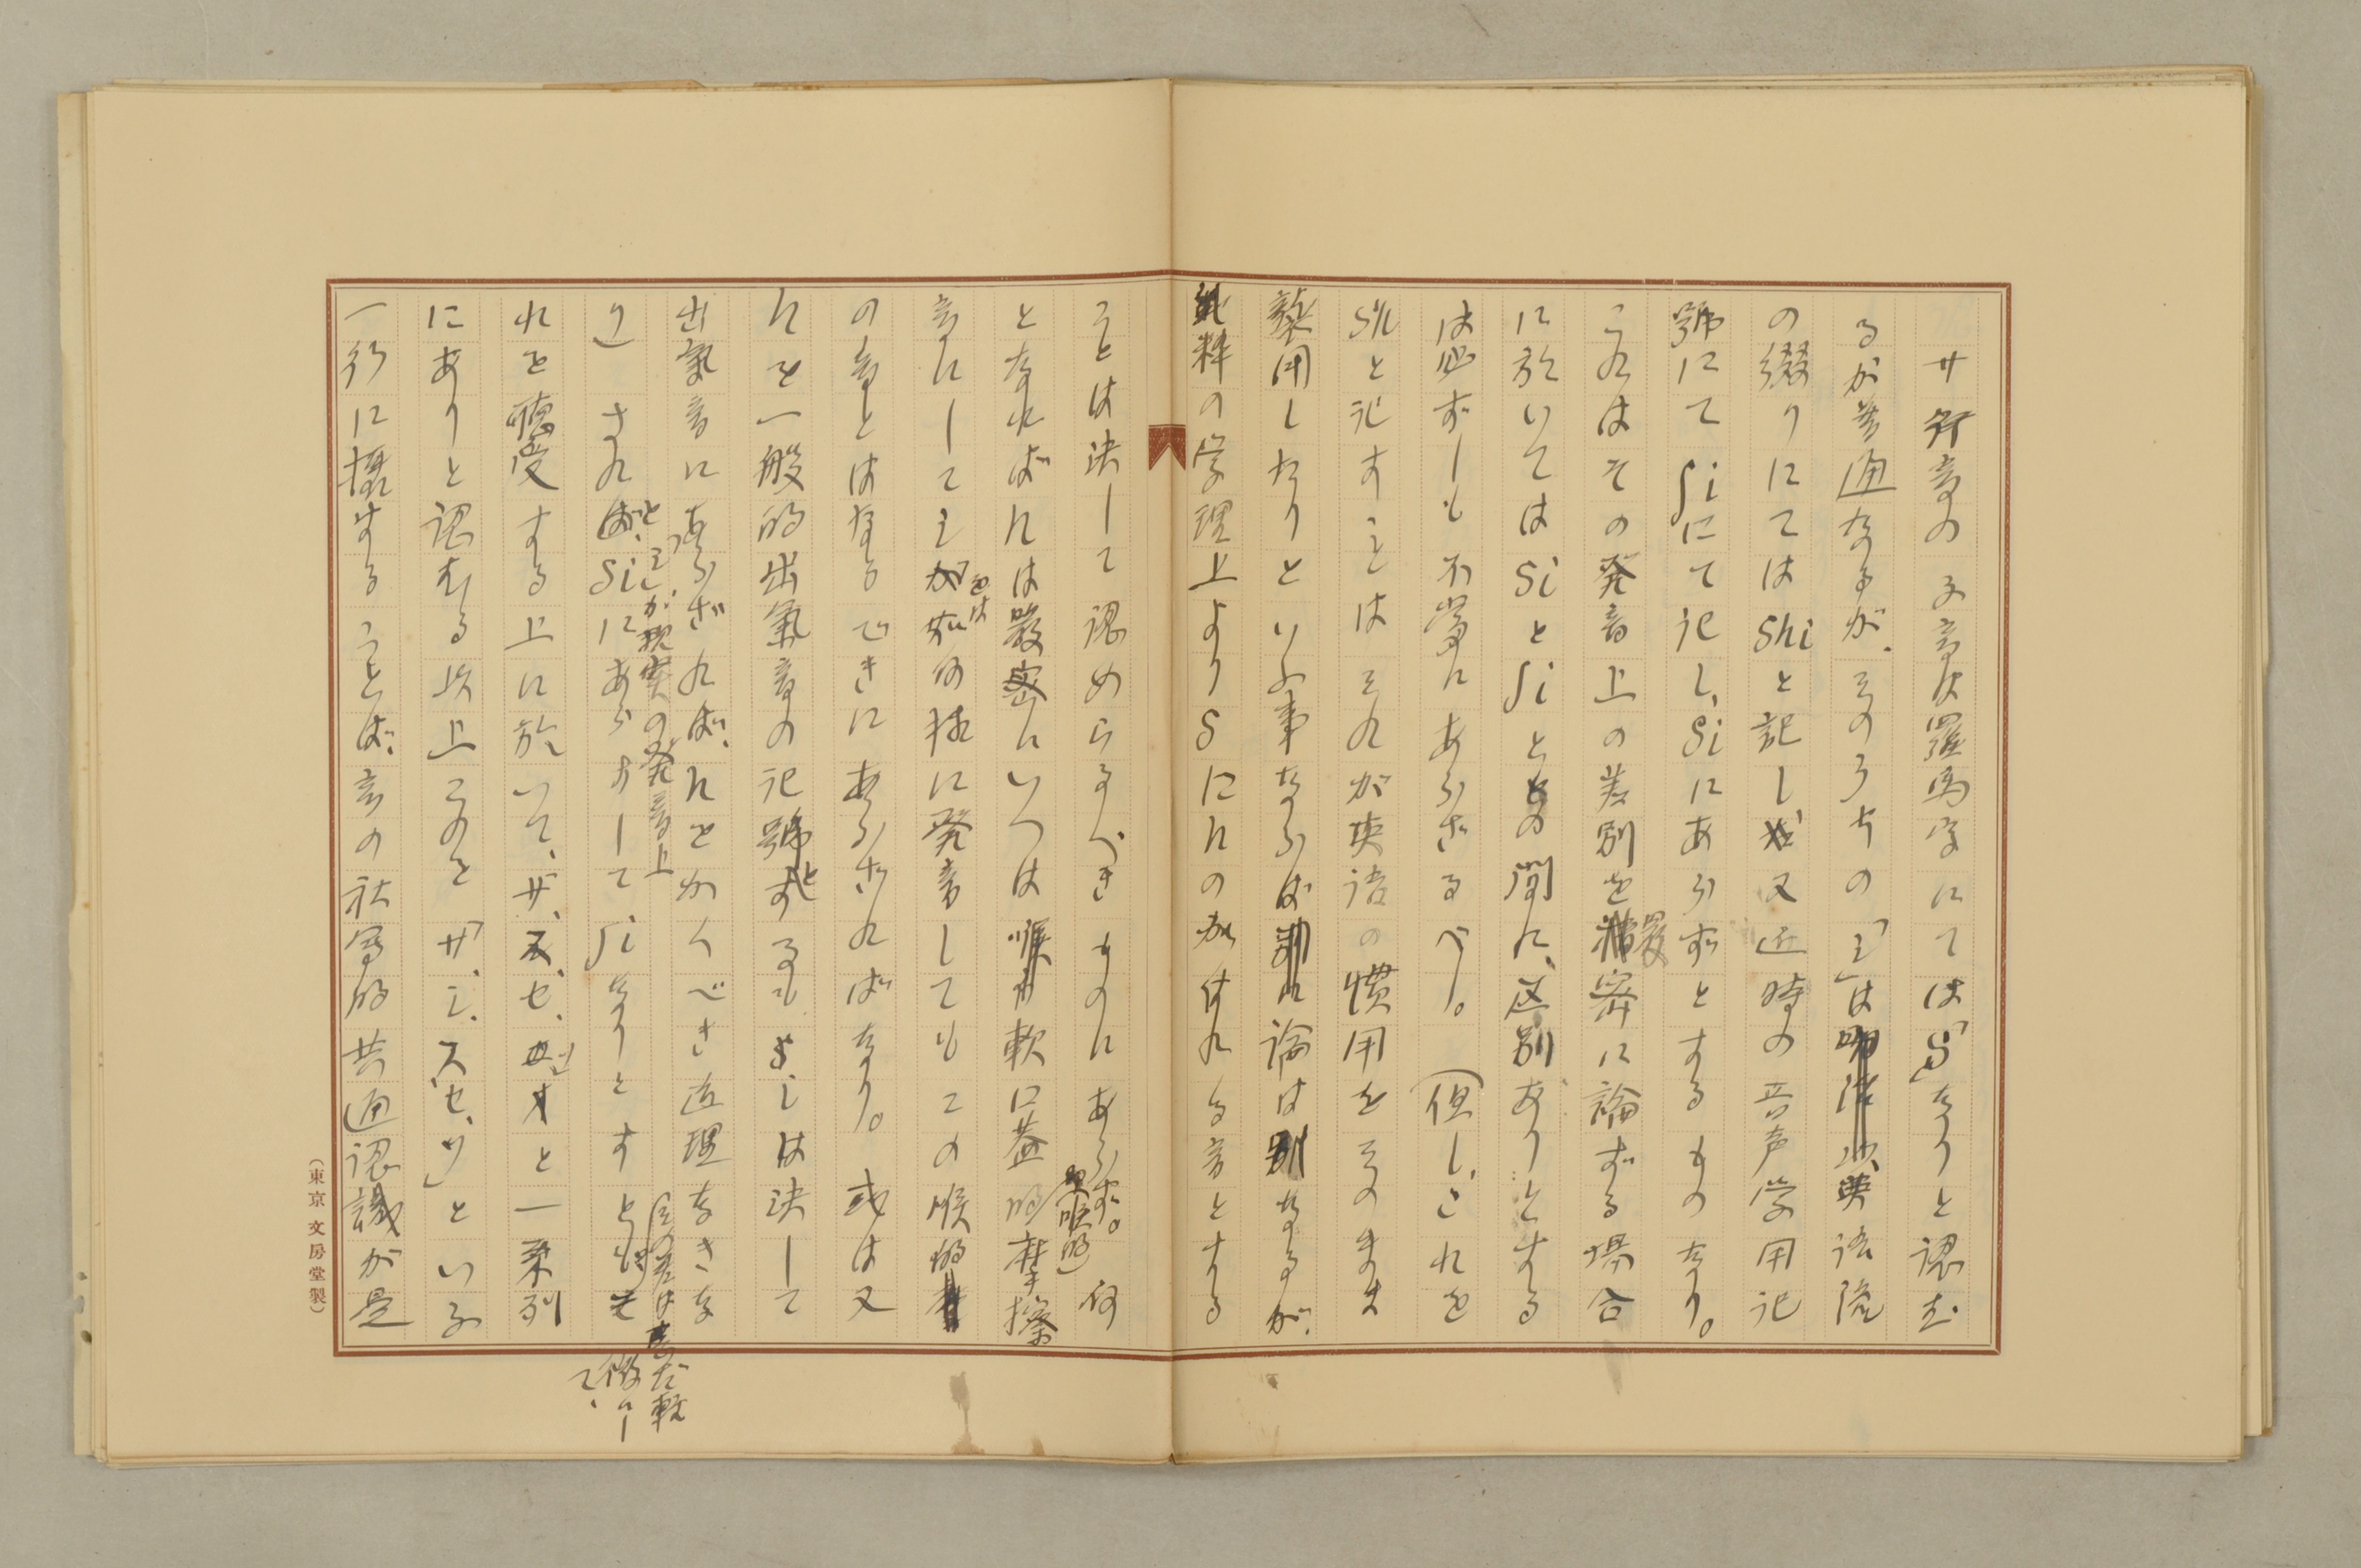 サ行音の子音は羅馬字にては「S」なりと認む
るが普通なるが、そのうちの「シ」は英語流
の綴りにてはshiと記し又近時の音声学用記
號にてʃiにて記し、siにあらずとするものなり。
これはその発音上の差別を厳密に論ずる場合
に於いてはsiとʃiとの間に、区別ありとする
は必ずしも不当にあらざるべし。（但し、これを
shとすことはそれが英語の慣用をそのまま
襲用したりといふ事ならば論は別なるが、
純粋の学理上よりSにhの加はれる音とする
ことは決して認めらるべきものにあらず。何
となればhは厳密にいへば軟口蓋的摩擦
（喉頭的）
音にしてシをば如何様に発音してもこの喉的
の音とはなるできにあらざればなり。或は又
hを一般的出氣音の記號とするもs、シは決して
出氣音にあらざれば、hとかくべき道理なきな
り）されば、「シ」が現実の発音上
siにあらずしてʃiなりとすとも
（この差は甚だ軽微にして、
れを聴受する上に於いて、サ、ス、セ、ソと一系列
にありと認むる以上このを「サ、シ、ス、セ、ソ」といふ
一行に攝することは、言の社会的共通認識が是
（東京 文房堂製）